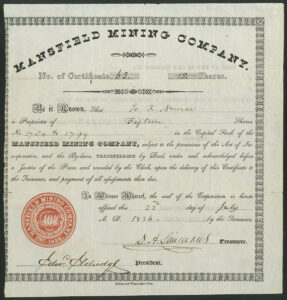 MANSFIELD MINING COMPANY.
No. of Certificate 63. 15 Shares.
Be it Known, That
is Proprietor of Fifteen Shares
No. 1784 to 1799 in the Capital Stock of the
MANSFIELD MINING COMPANY, subject to the provisions of the Act of Incorporation, and the Bylaws, TRANSFERABLE by Deed, under and acknowledged before
a Justice of the Peace, and recorded by the Clerk, upon the delivery of this Certificate to
the Treasurer, and payment of all assessments then due.
In Witness Whereof, the seal of the Corporation is hereto
affixed this 22d day of July
A. D. 1836 by the Treasurer,
Treasurer.
President.
MANSFIELD MINING COMPANY